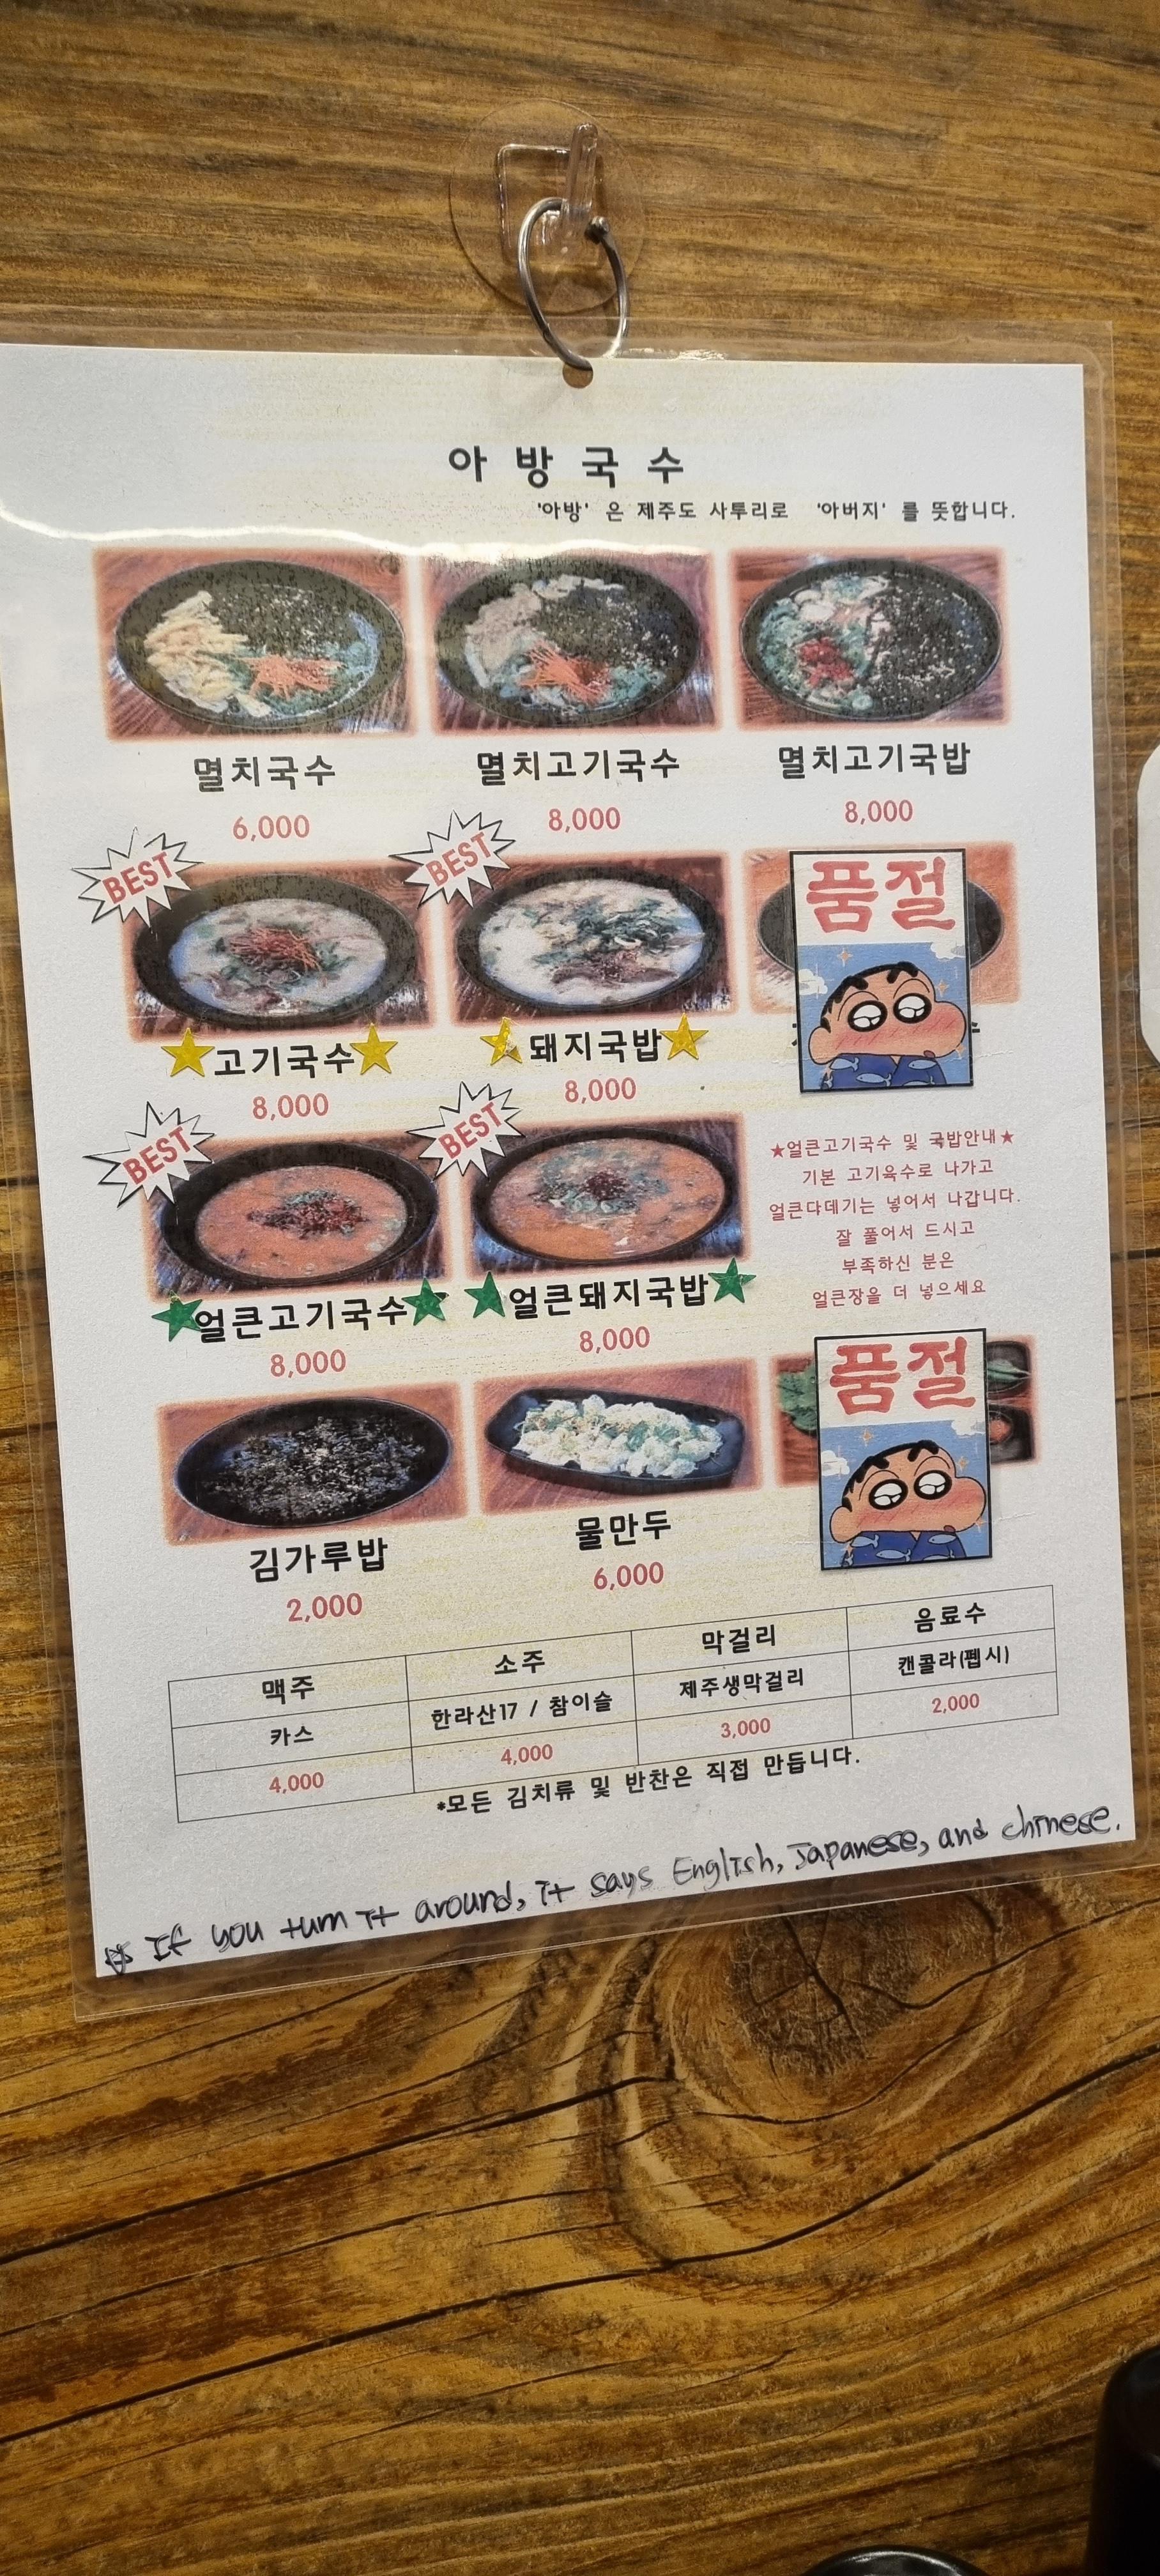 아방국수
'아방' 은 제주도 사투리로 '아버지' 를 뜻합니다.
멸치국수
6,000
멸치고기국수
8,000
멸치고기국밥
8,000
BEST
고기국수
8,000
BEST
돼지국밥
8,000
품절
BEST
얼큰고기국수
8,000
BEST
얼큰돼지국밥
8,000
★얼큰고기국수 및 국밥안내★
기본 고기육수로 나가고
얼큰다데기는 넣어서 나갑니다.
잘 풀어서 드시고
부족하신 분은
얼큰장을 더 넣으세요
김가루밥
2,000
물만두
6,000
품절
맥주 소주 막걸리 음료수
카스 한라산17 / 참이슬 제주생막걸리 캔콜라(펩시)
4,000 4,000 3,000 2,000
*모든 김치류 및 반찬은 직접 만듭니다.
☆ If you turn it around, it says English, Japanese, and chinese.